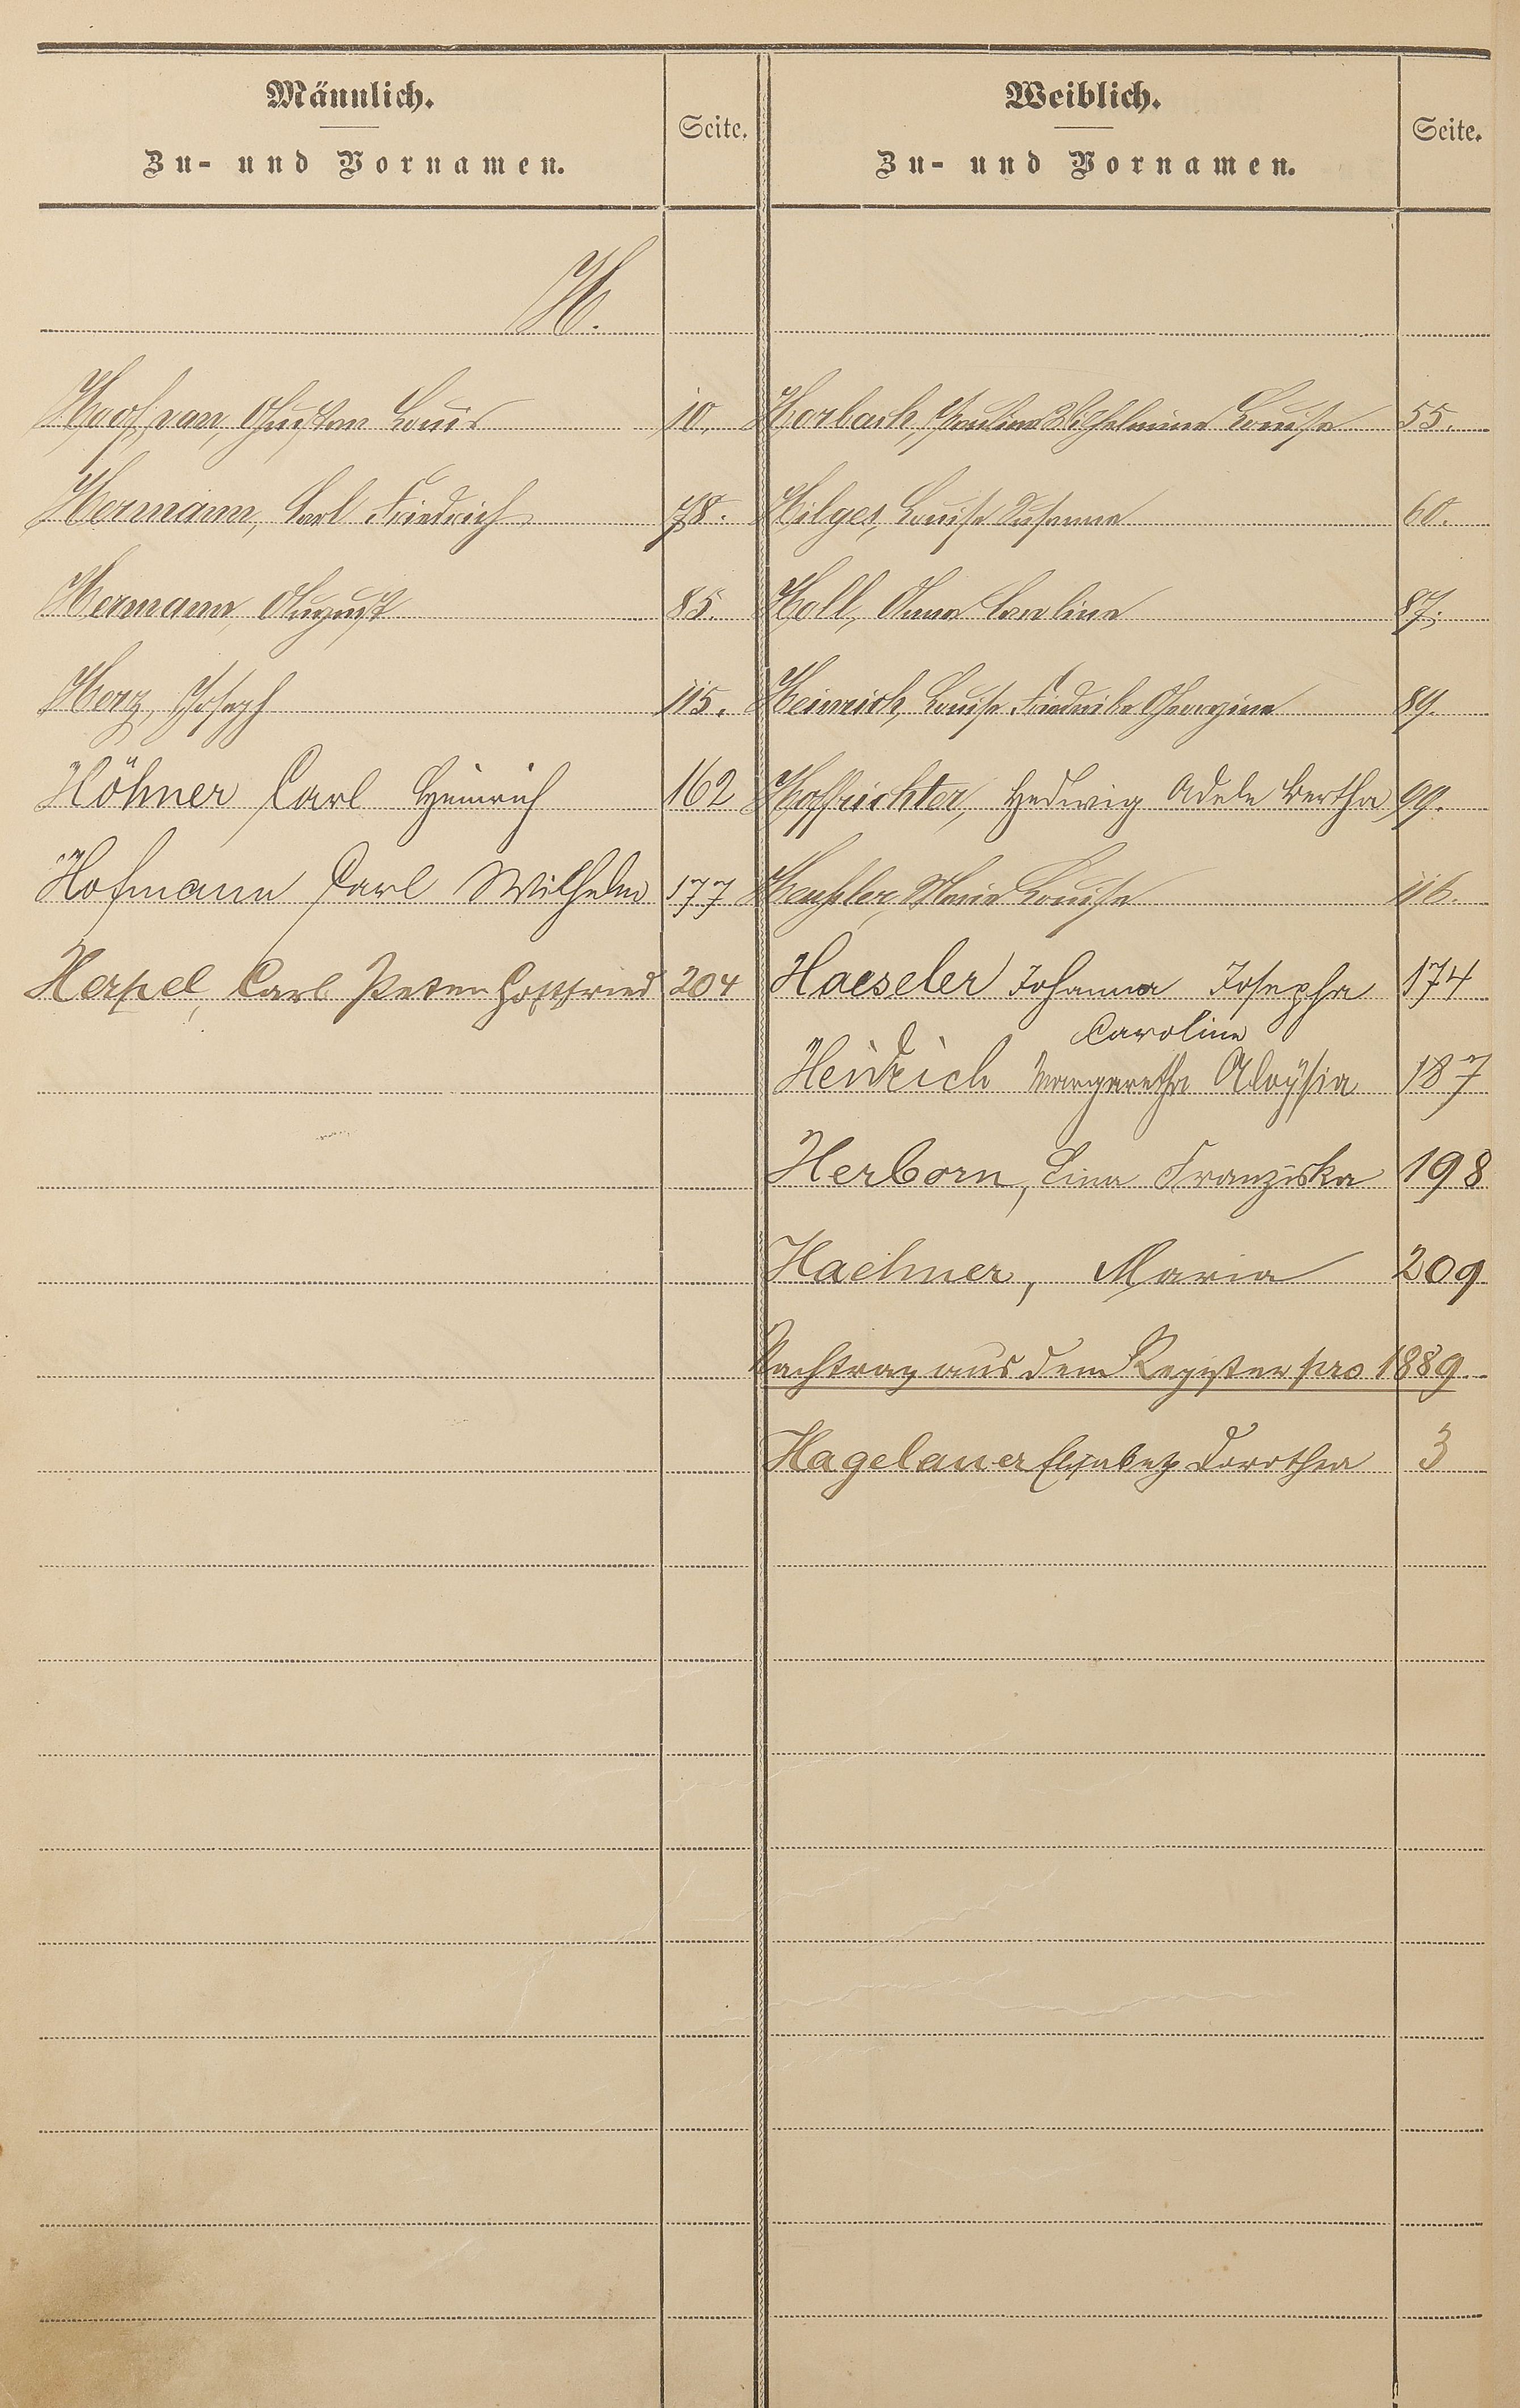 Männlich.
Zu- und Vornamen.
Seite.
Weiblich.
Zu- und Vornamen.
Seite.
H.
Hoof, van, Gustav Louis 10. Horbach, Pauline Wilhelmine Louise 55.
Hermann, Carl Friedrich 78. Hilges, Louise Susanna 60.
Hermann, August 85. Holl, Anna Caroline 87.
Herz, Joseph 115. Heinrich, Louise Friederike Georgine 89.
Höhner Carl Heinrich 162 Hoffrichter, Hedwig Adele Bertha 99.
Hofmann Carl Wilhelm 177 Marie Louise 116.
Herpel, Carl Peter Gottfried 204 Haeseler Johanna Josepha 174
Caroline
Heidrich Margaretha Aloÿsia 187
Herborn, Lina Franziska 198
Haehner, Maria 209
Nachtrag aus dem Register pro 1889.
Hagelauer Elisabeth Dorothea 3